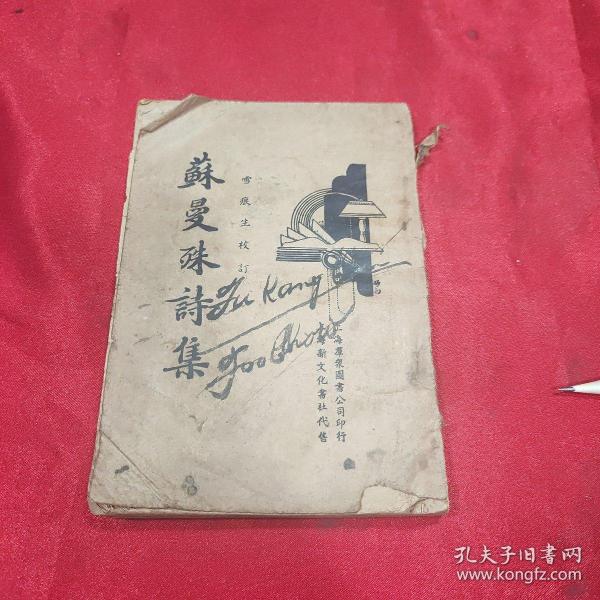 蘇曼殊詩集
雪痕生校訂
上海羣衆圖書公司印行
新文化書社代售
Fu Kang
Foo Chow
孔夫子旧书网
www.kongfz.com